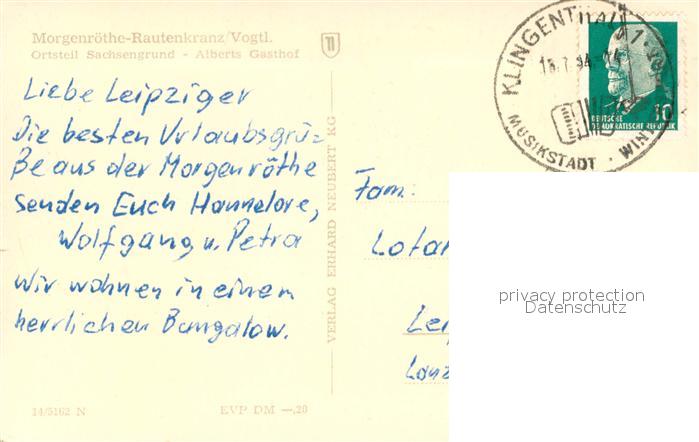 Morgenröthe-Rautenkranz/Vogtl.
Ortsteil Sachsengrund - Alberts Gasthof
Liebe Leipziger
Die besten Urlaubsgrü-
ße aus der Morgenröthe
senden Euch Hannelore,
Wolfgang u. Petra
Wir wohnen in einem
herrlichen Bungalow.
14/5162 N
EVP DM —,20
VERLAG ERHARD NEUBERT KG
KLINGENTHAL 1
MUSIKSTADT · WIN
10
DEUTSCHE
DEMOKRATISCHE REPUBLIK
Fam.:
Lotar
Lei
privacy protection
Datenschutz